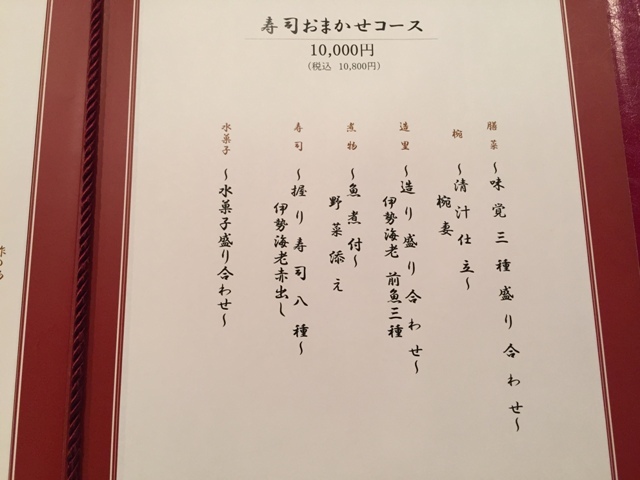 寿司おまかせコース
10,000円
(税込 10,800円)
膳菜
～味覚三種盛り合わせ～
椀
～清汁仕立～
椀妻
造里
～造り盛り合わせ～
伊勢海老 前魚三種
煮物
～魚煮付～
野菜添え
寿司
～握り寿司八種～
伊勢海老赤出し
水菓子
～水菓子盛り合わせ～